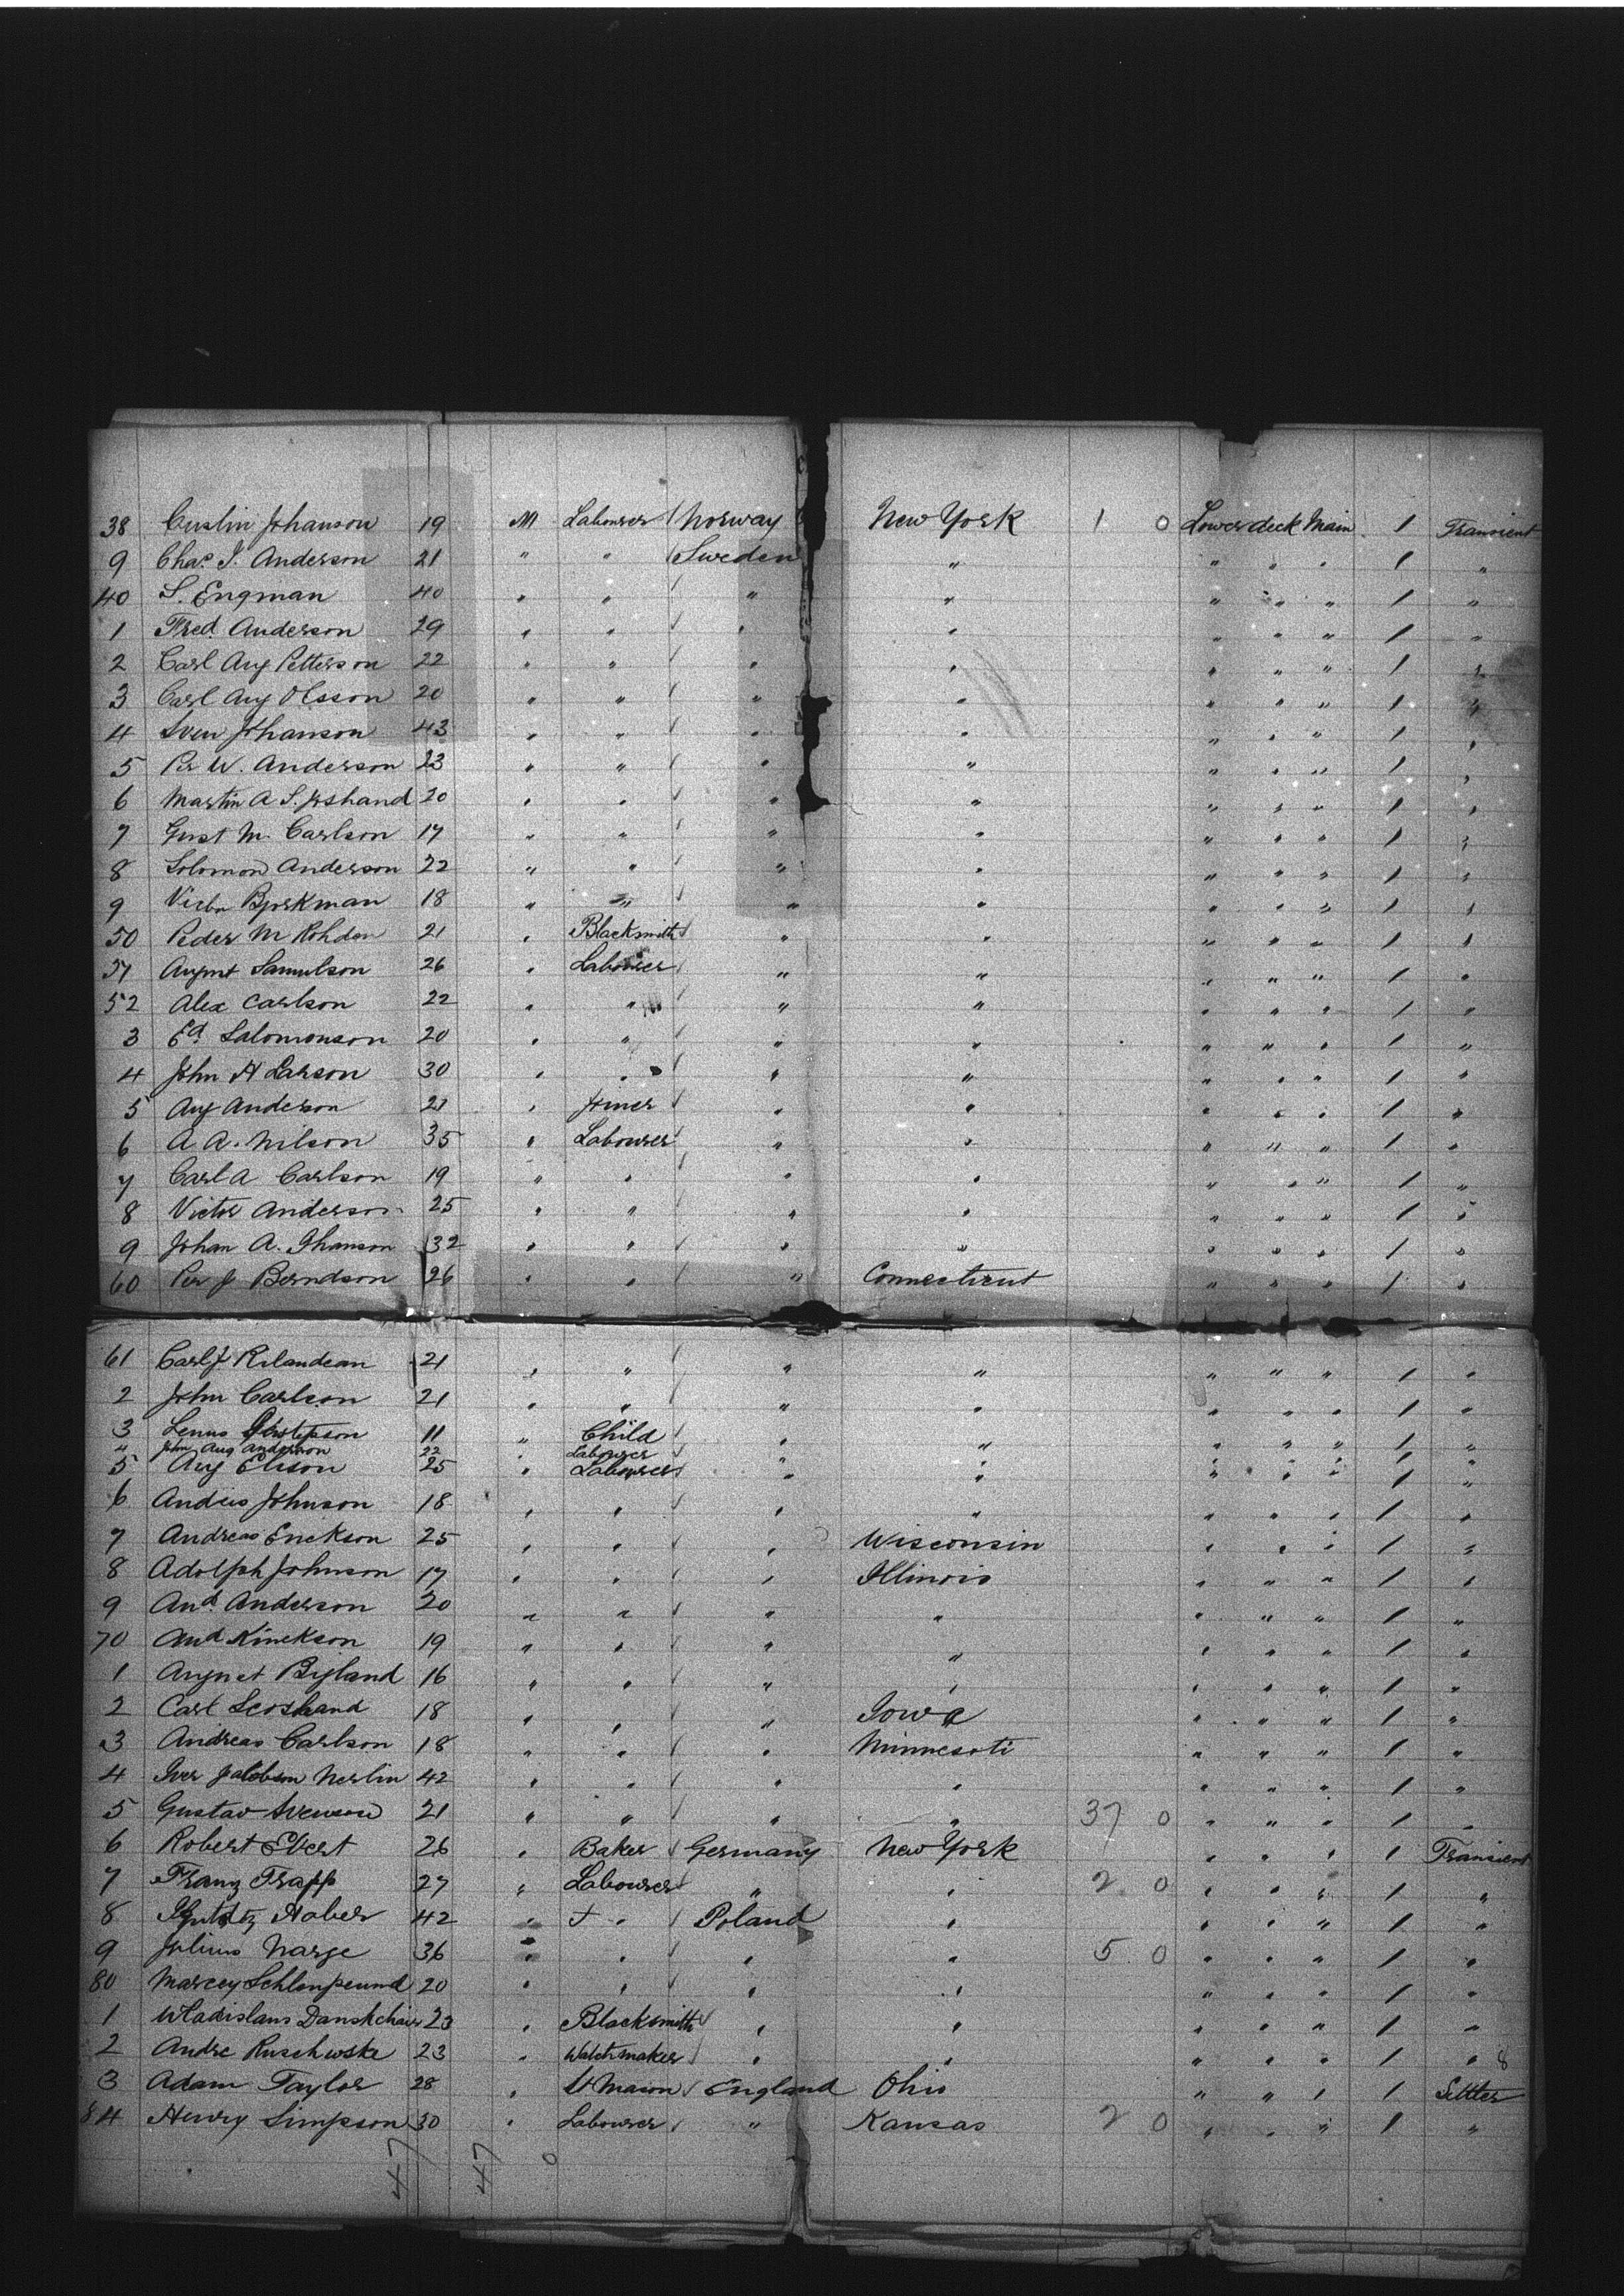 38 Custin Johanson 19 M Labourer Norway New York 1 0 Lower deck Main 1 Transient
9 Chas. J. Anderson 21 " " Sweden " " " " 1 "
40 S. Engman 40 " " " " " " " 1 "
1 Fred. Anderson 29 " " " " " " " 1 "
2 Carl Aug Petterson 22 " " " " " " " 1 "
3 Carl Aug Olsson 20 " " " " " " " 1 "
4 Sven Johanson 43 " " " " " " " 1 "
5 Per W. Anderson 23 " " " " " " " 1 "
6 Martin A S. 20 " " " " " " " 1 "
7 Gust M. Carlson 17 " " " " " " " 1 "
8 Solomon Anderson 22 " " " " " " " 1 "
9 Victor Bjorkman 18 " " " " " " " 1 "
50 Peder M Rohden 21 " Blacksmith " " " " " 1 "
51 August Samulson 26 " Labourer " " " " " 1 "
52 Alex Carlson 22 " " " " " " " 1 "
3 Ed. Salomonson 20 " " " " " " " 1 "
4 John A Larson 30 " " " " " " " 1 "
5 Aug Anderson 21 " Joiner " " " " " 1 "
6 A A. Nilson 35 " Labourer " " " " " 1 "
7 Carl A Carlson 19 " " " " " " " 1 "
8 Victor Anderson 25 " " " " " " " 1 "
9 Johan A. Johanson 32 " " " " " " " 1 "
60 Per J Berndson 26 " " " Connecticut " " " 1 "
61 Carl J 21 " " " " " " " 1 "
2 John Carlson 21 " " " " " " " 1 "
3 Lenus 11 " Child " " " " " 1 "
4 John Aug Anderson 22 " Labourer " " " " " 1 "
5 Aug Elison 25 " Labourer " " " " " 1 "
6 Andies Johnson 18 " " " " " " " 1 "
7 Andreas Erickson 25 " " " Wisconsin " " " 1 "
8 Adolph Johnson 17 " " " Illinois " " " 1 "
9 And. Anderson 20 " " " " " " " 1 "
70 And 19 " " " " " " " 1 "
1 August 16 " " " " " " " 1 "
2 Carl 18 " " " Iowa " " " 1 "
3 Andreas Carlson 18 " " " Minnesoti " " " 1 "
4 Iver Jacobson Nerlin 42 " " " " " " " 1 "
5 Gustav Svenson 21 " " " " 37 0 " " " 1 "
6 Robert Evert 26 " Baker Germany New York " " " 1 Transient
7 Franz Trapp 27 " Labourer " " 2 0 " " " 1 "
8 Haber 42 " " Poland " " " " 1 "
9 Julius Narge 36 " " " " 5 0 " " " 1 "
80 Marcey 20 " " " " " " " 1 "
1 Wladislaus 23 " Blacksmith " " " " " 1 "
2 Andre Ruschwske 23 " Watchmaker " " " " " 1 " 8
3 Adam Taylor 28 " St Mason England Ohio " " " 1 Settler
84 Henry Simpson 30 " Labourer " Kansas 2 0 " " " 1 "
47 47 0